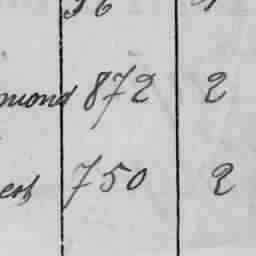 mond 872 2
750 2